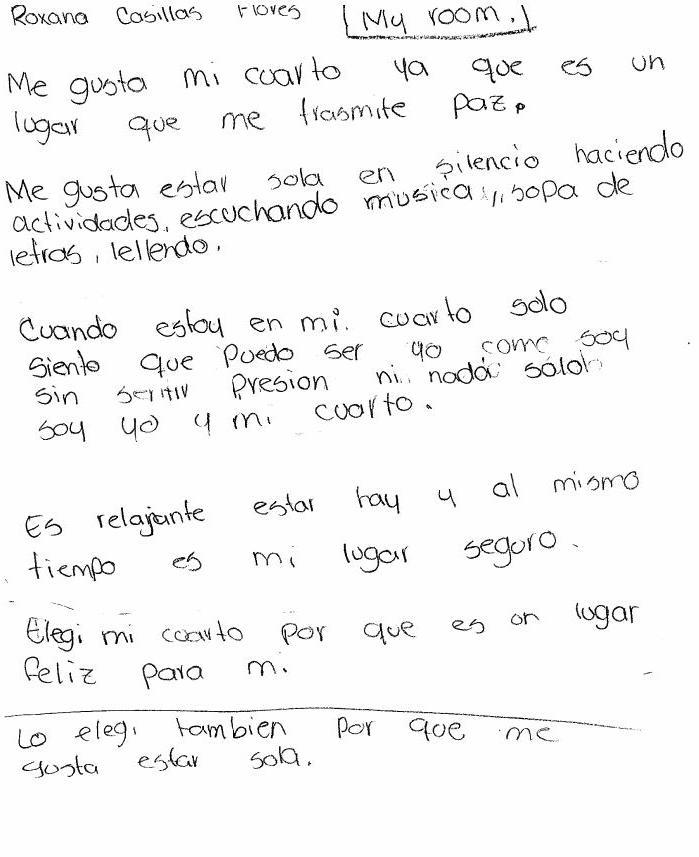 Roxana Casillas Flores [My room.]
Me gusta mi cuarto ya que es un
lugar que me trasmite paz.
Me gusta estar sola en silencio haciendo
actividades, escuchando musica,, sopa de
letras, lellendo.
Cuando estoy en mi. cuarto solo
siento que puedo ser yo come soy
sin sentir presion ni nada solo
soy yo y mi cuarto.
Es relajante estar hay y al mismo
tiempo es mi lugar seguro.
Elegi mi cuarto por que es un lugar
feliz para mi.
Lo elegi tambien por que me
gusta estar sola.